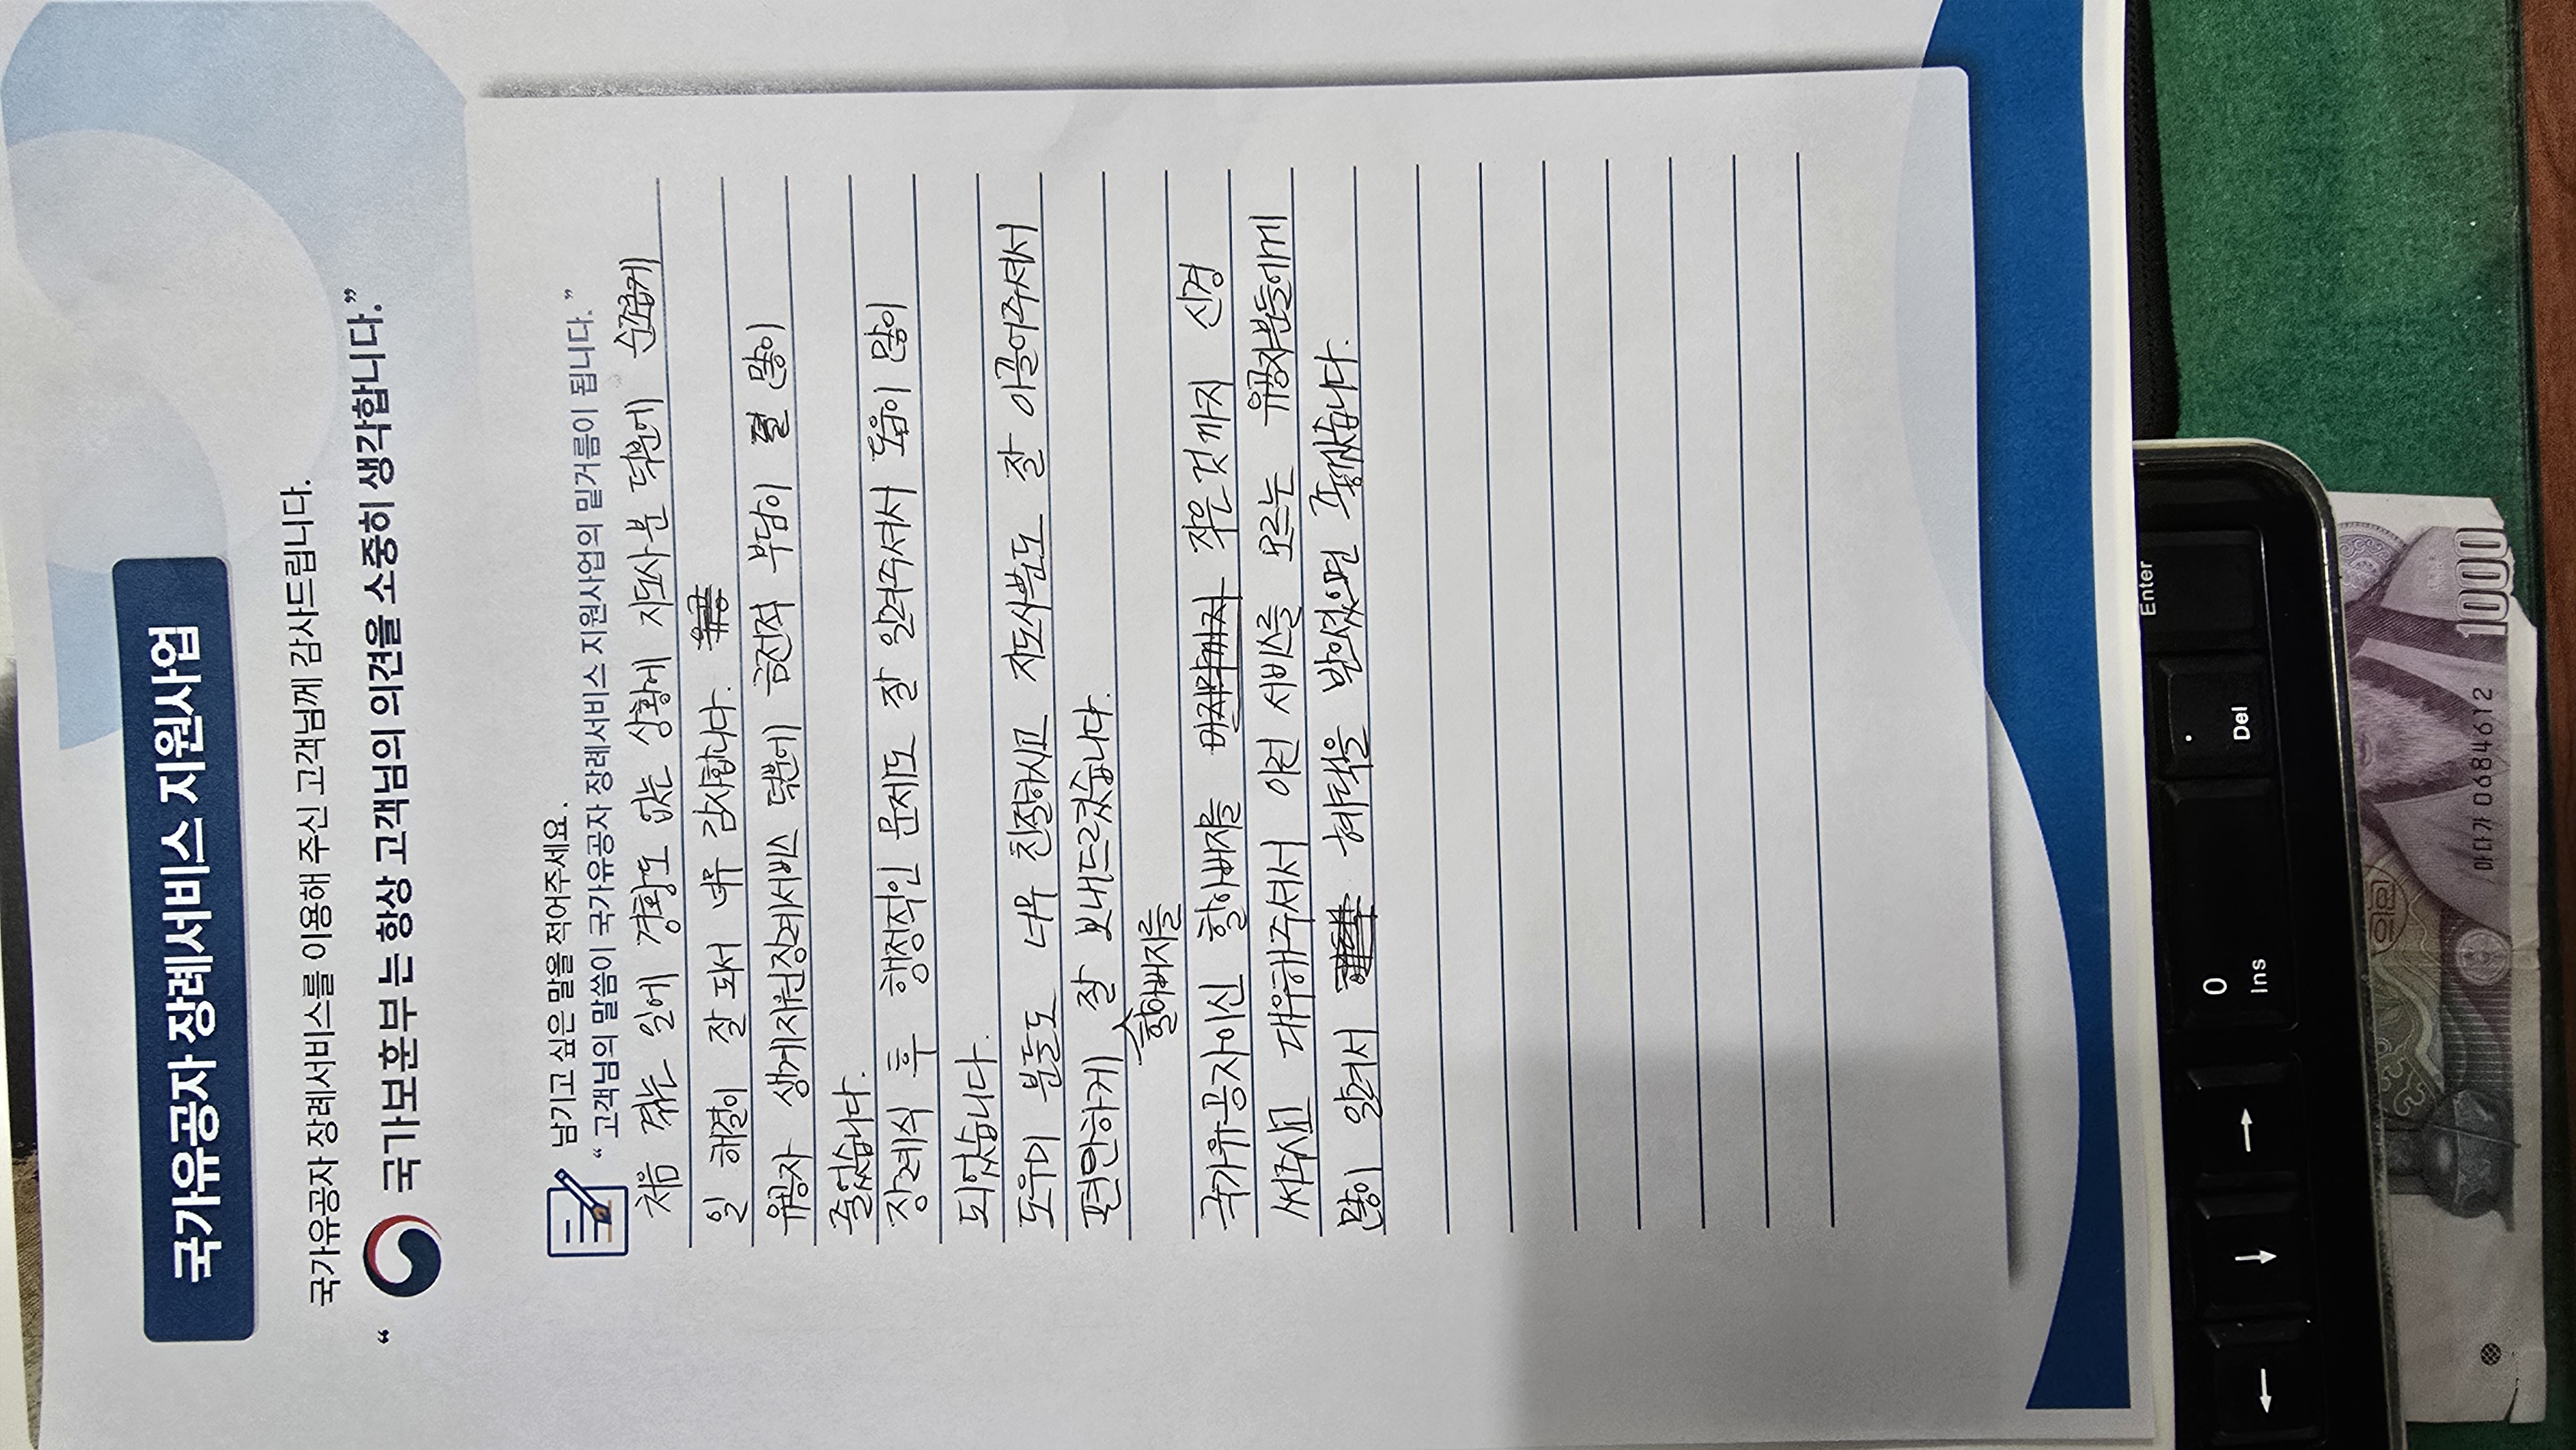 국가유공자 장례서비스 지원사업
국가유공자 장례서비스를 이용해 주신 고객님께 감사드립니다.
“ 국가보훈부는 항상 고객님의 의견을 소중히 생각합니다.”
남기고 싶은 말을 적어주세요.
“ 고객님의 말씀이 국가유공자 장례서비스 지원사업의 밑거름이 됩니다. ”
처음 겪는 일에 경황도 없는 상황에 지도사분 덕분에 순조롭게
일 해결이 잘 돼서 너무 감사합니다.
유공자 생계지원장례서비스 덕분에 금전적 부담이 많이
줄었습니다.
장례식 후 행정적인 문제도 잘 알려주셔서 도움이 많이
되었습니다.
도우미 분들도 너무 친절하시고 지도사분도 잘 이끌어주셔서
편안하게 잘 보내드리겠습니다.
할아버지를
국가유공자이신 할아버지를 작은것까지 신경
써주시고 대우해주셔서 이런 서비스를 모르는 유공자분들에게
많이 알려서 혜택을 받았으면 좋겠습니다.
Enter
0
Ins
.
Del
←
↓
→
1000
마다가 0684612